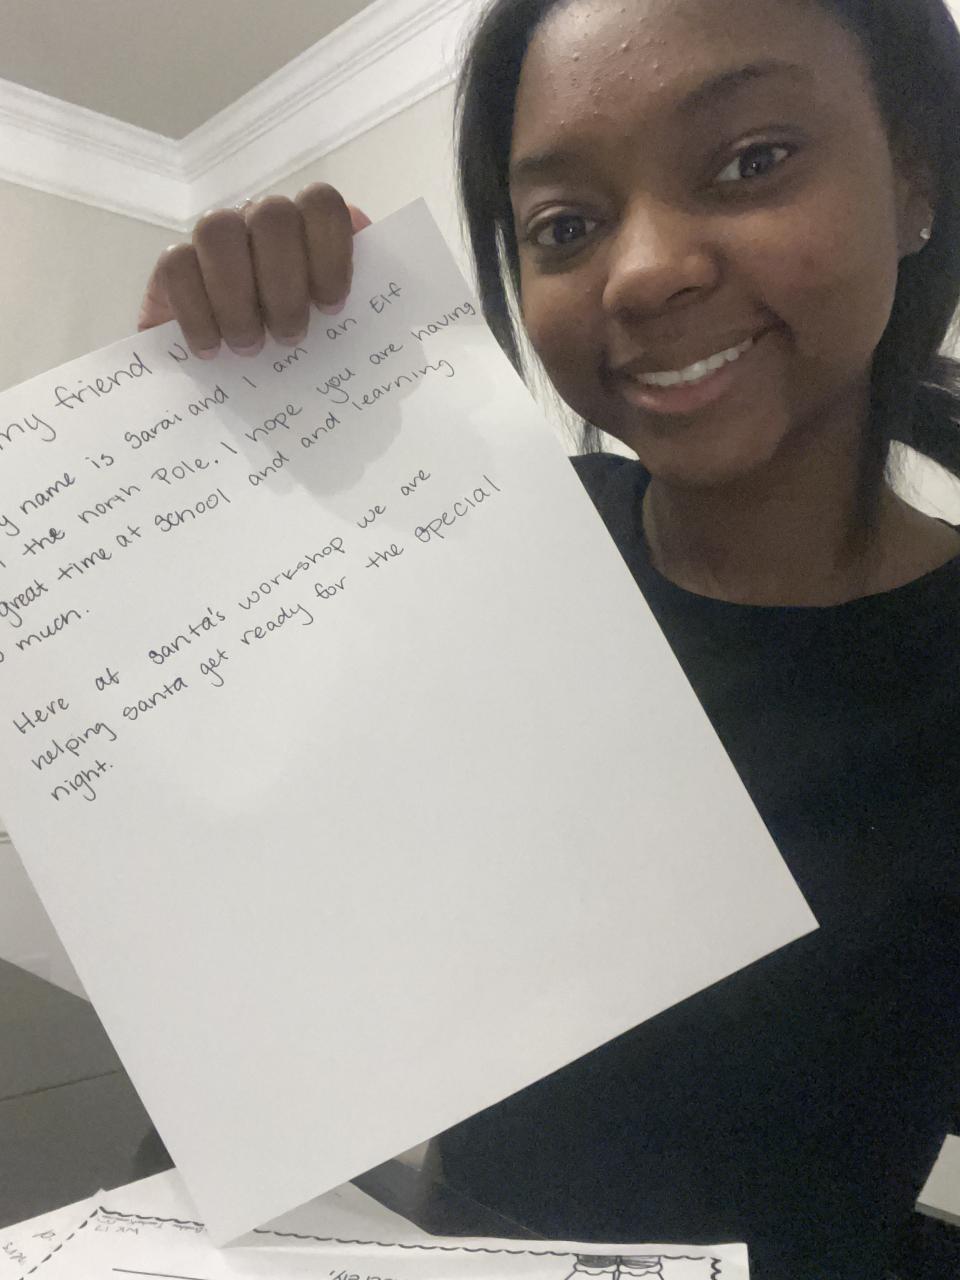 my friend N
name is Sarai and I am an Elf
the north Pole. I hope you are having
great time at school and and learning
much.
Here at Santa's workshop we are
helping Santa get ready for the special
night.
WK 17